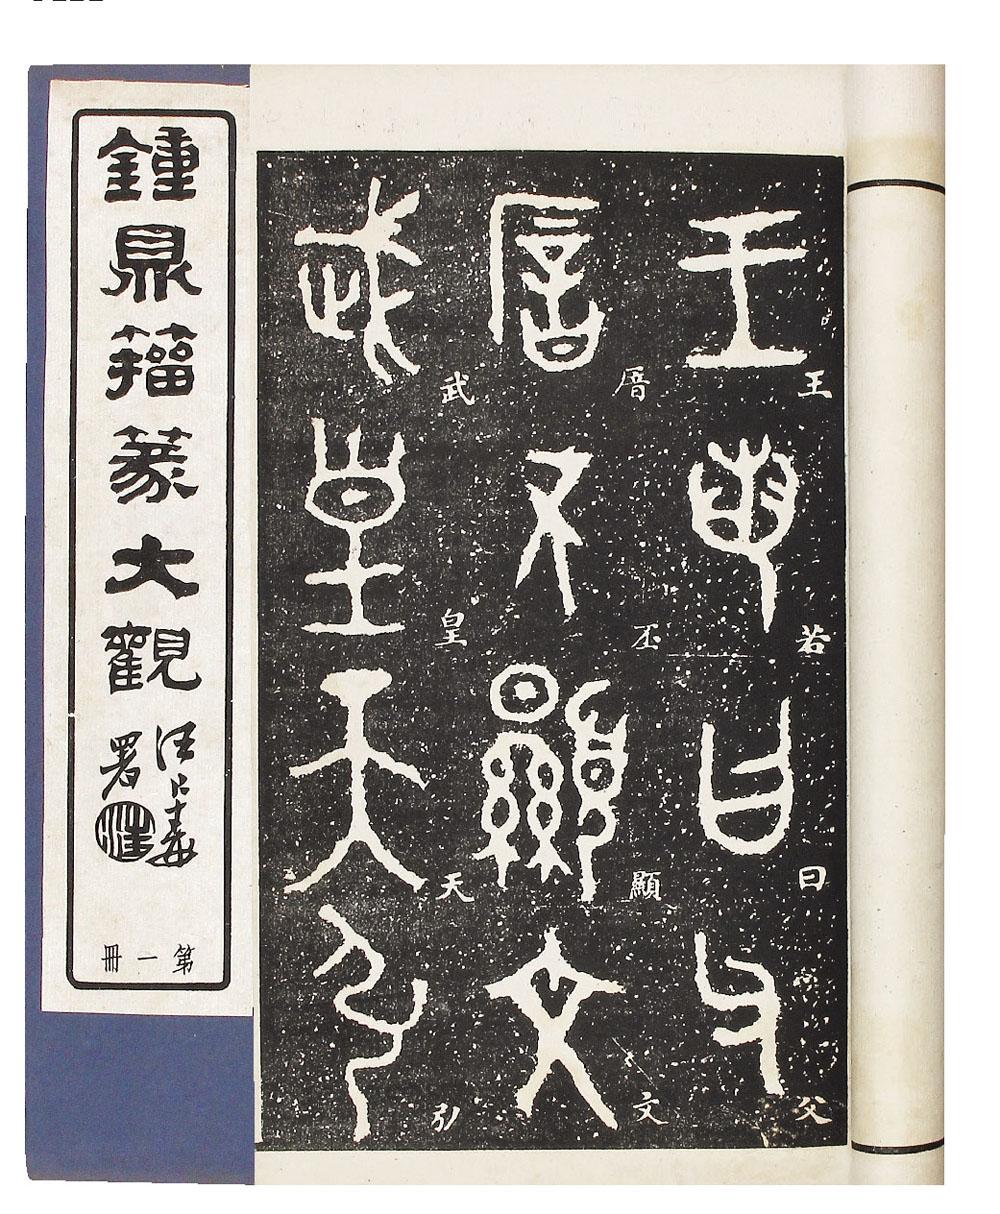 鍾鼎籀篆大觀
汪仁壽
署
第一冊
王若曰父
厝丕顯文
武皇天引